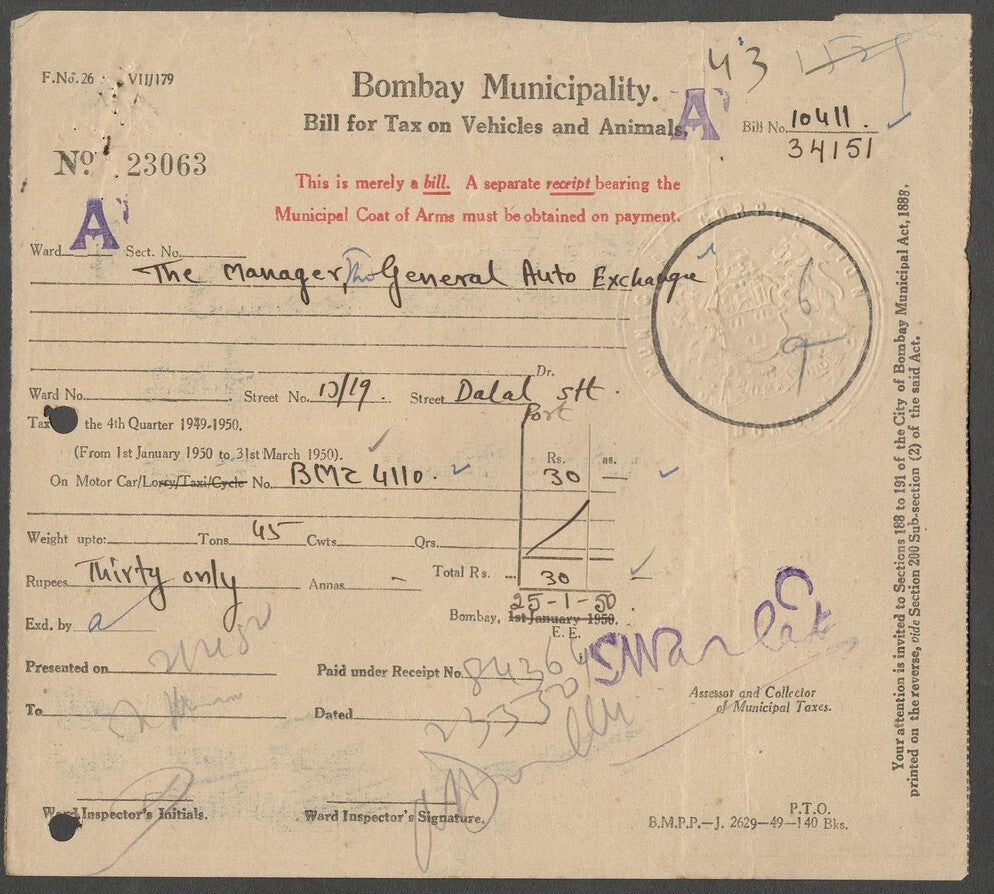 43
F.No. 26 VII/179
Bombay Municipality.
Bill for Tax on Vehicles and Animals,
A
Bill No. 10411.
34151
No. 23063
This is merely a bill. A separate receipt bearing the
Municipal Coat of Arms must be obtained on payment.
Ward A Sect. No.
The Manager, The General Auto Exchange
6
9
Dr.
Ward No. Street No. 10/19. Street Dalal stt.
Fort
Tax the 4th Quarter 1949-1950.
(From 1st January 1950 to 31st March 1950).
Rs. as.
On Motor Car/Lorry/Taxi/Cycle No. BMZ 4110. 30 —
Weight upto: Tons 45 Cwts. Qrs.
Rupees Thirty only Annas - Total Rs. 30 —
25-1-50
Exd. by a Bombay, 1st January 1950.
E. E.
Presented on Paid under Receipt No.
Assessor and Collector
of Municipal Taxes.
To Dated
Ward Inspector's Initials. Ward Inspector's Signature.
P.T.O.
B.M.P.P.—J. 2629—49—140 Bks.
Your attention is invited to Sections 188 to 191 of the City of Bombay Municipal Act, 1888,
printed on the reverse, vide Section 200 Sub-section (2) of the said Act.